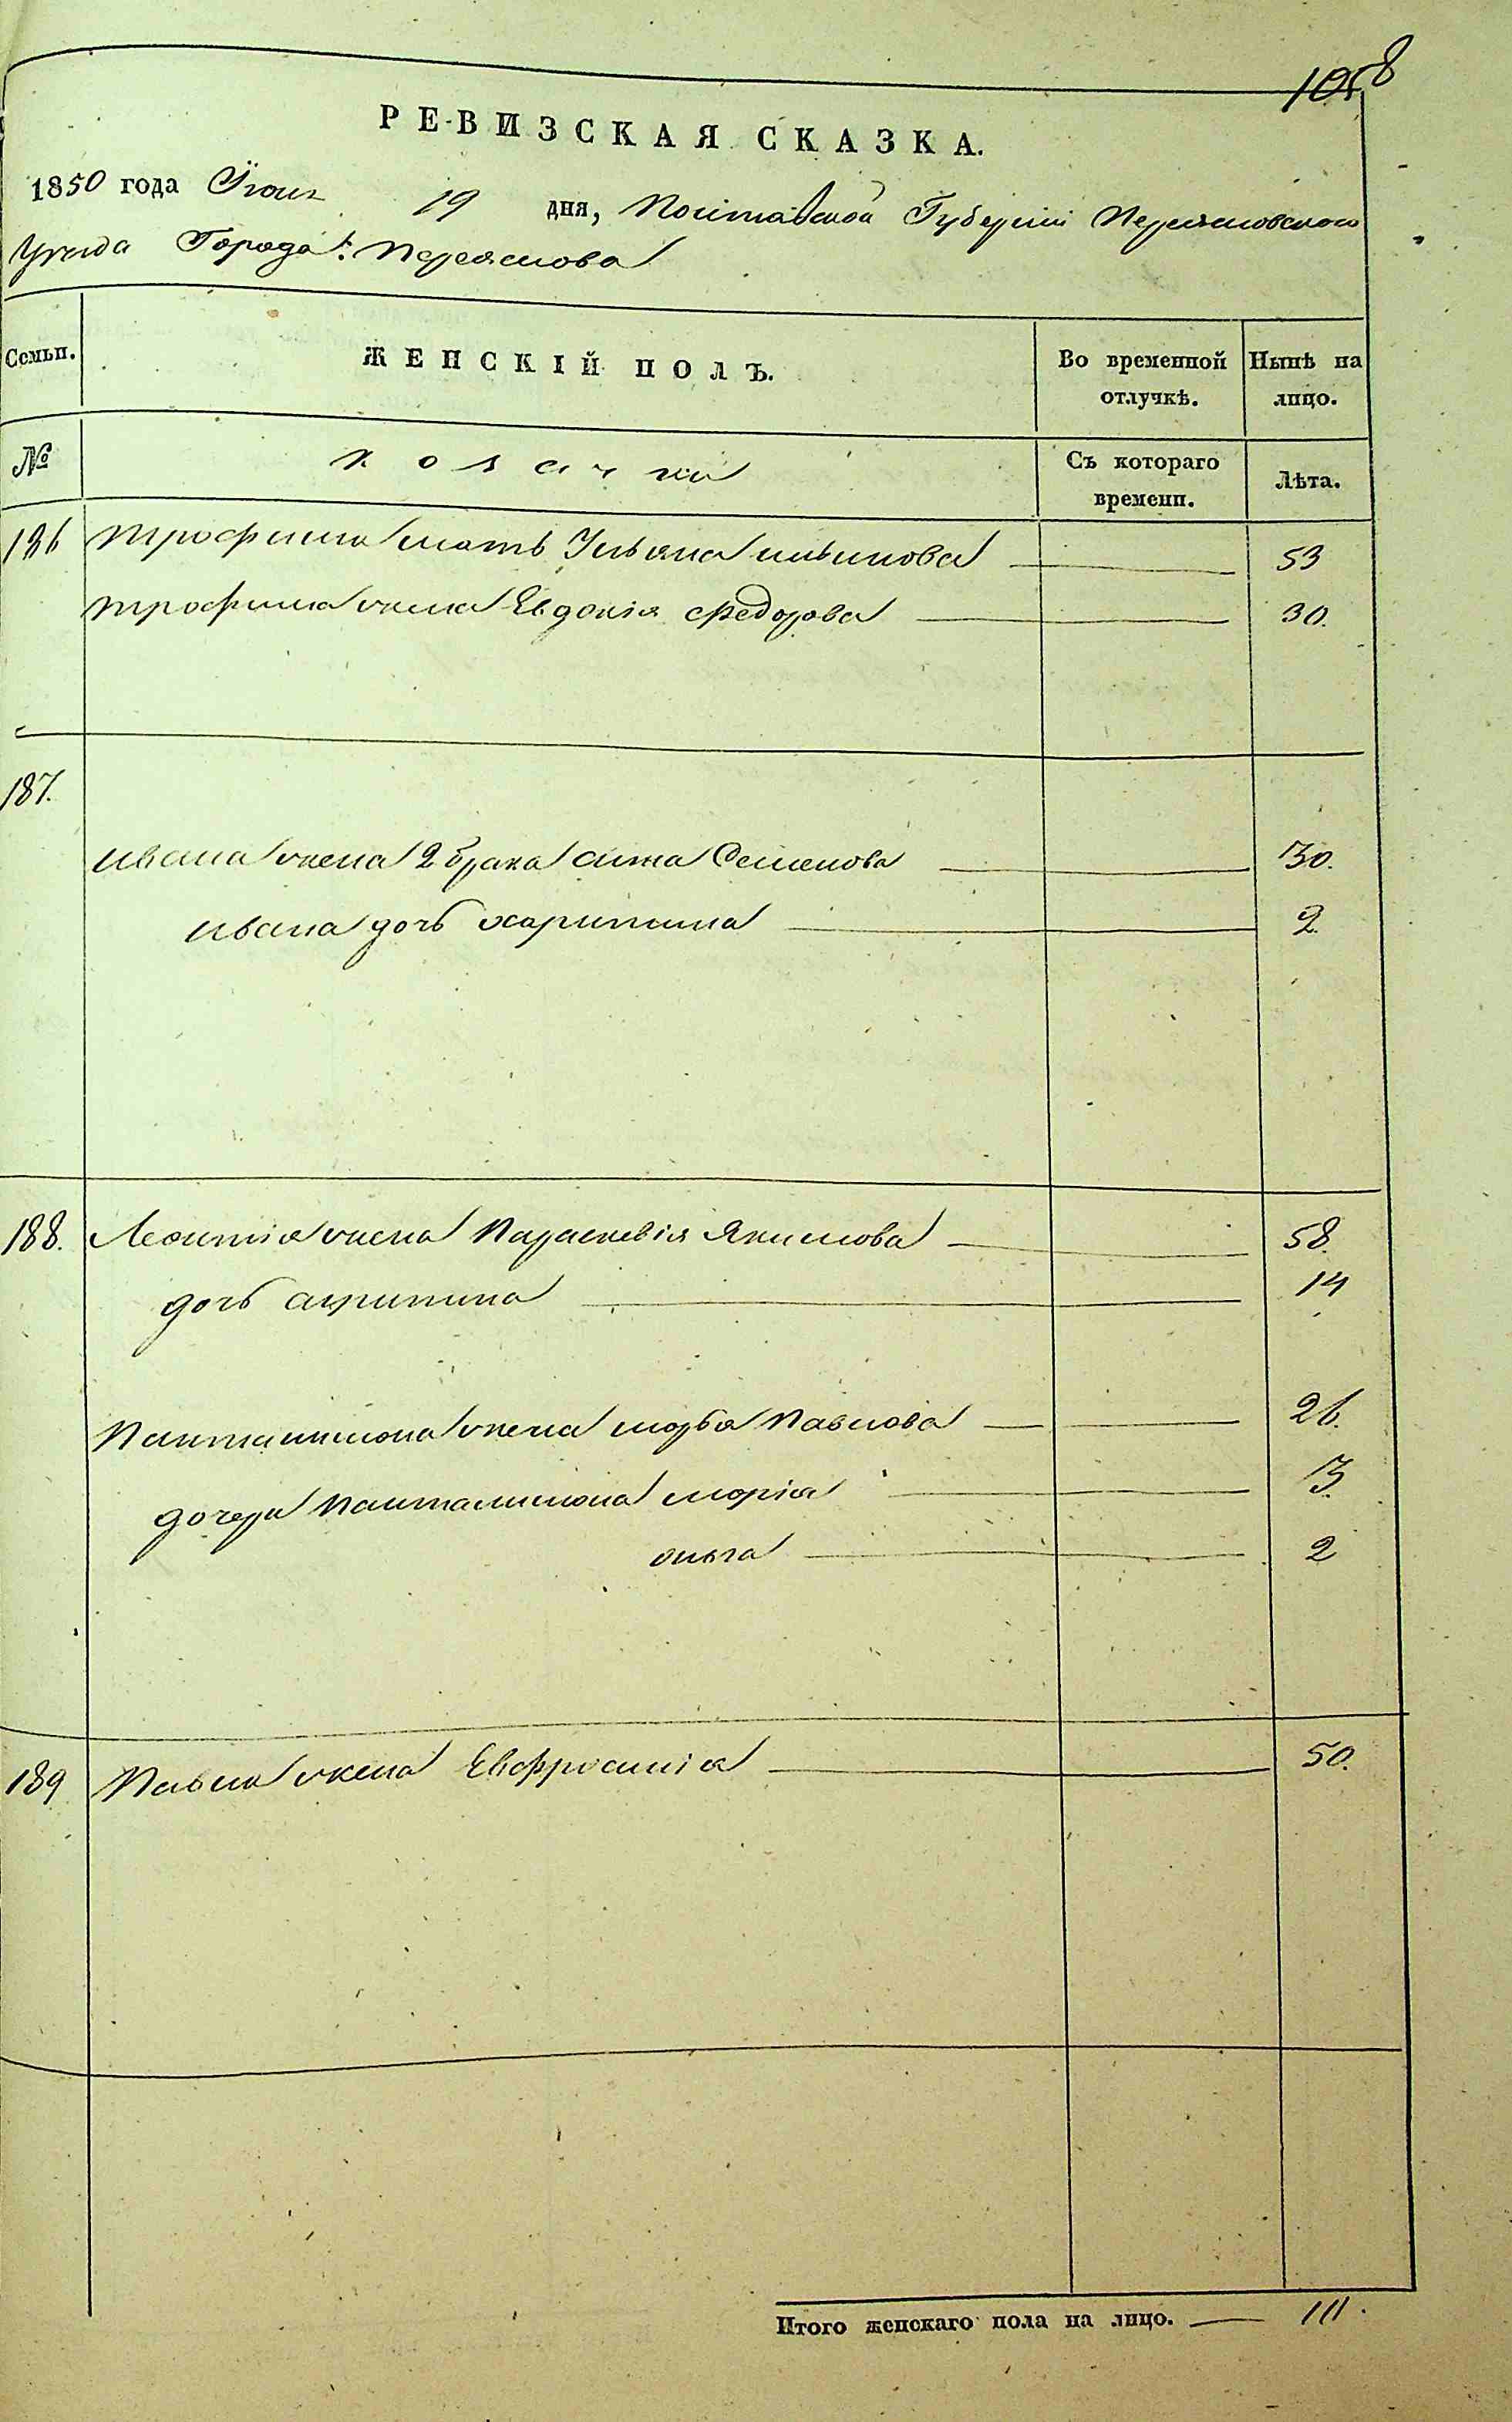 1058
РЕВИЗСКАЯ СКАЗКА.
1850 года Іюня 19 дня, Полтавской Губерніи Переяславского
Уезда Города Переяслова
Семьи. ЖЕНСКІЙ ПОЛЪ. Во временной отлучкѣ. Нынѣ на лицо.
№ козачки Съ котораго времени. Лѣта.
186 Трофима мать Ульяна ильинова 53
Трофима жена Евдокія Федорова 30.
187.
Ивана жена 2 брака анна Семенова 30.
Ивана дочь харитина 2
188. Леонтія жена Параскевія Якимова 58.
дочь агрипина 14
Панталимона жена марья Павлова 26.
дочери Панталимона марія 3.
ольга 2
189 Павла жена Евфросинія 50.
Итого женскаго пола на лицо. 111.